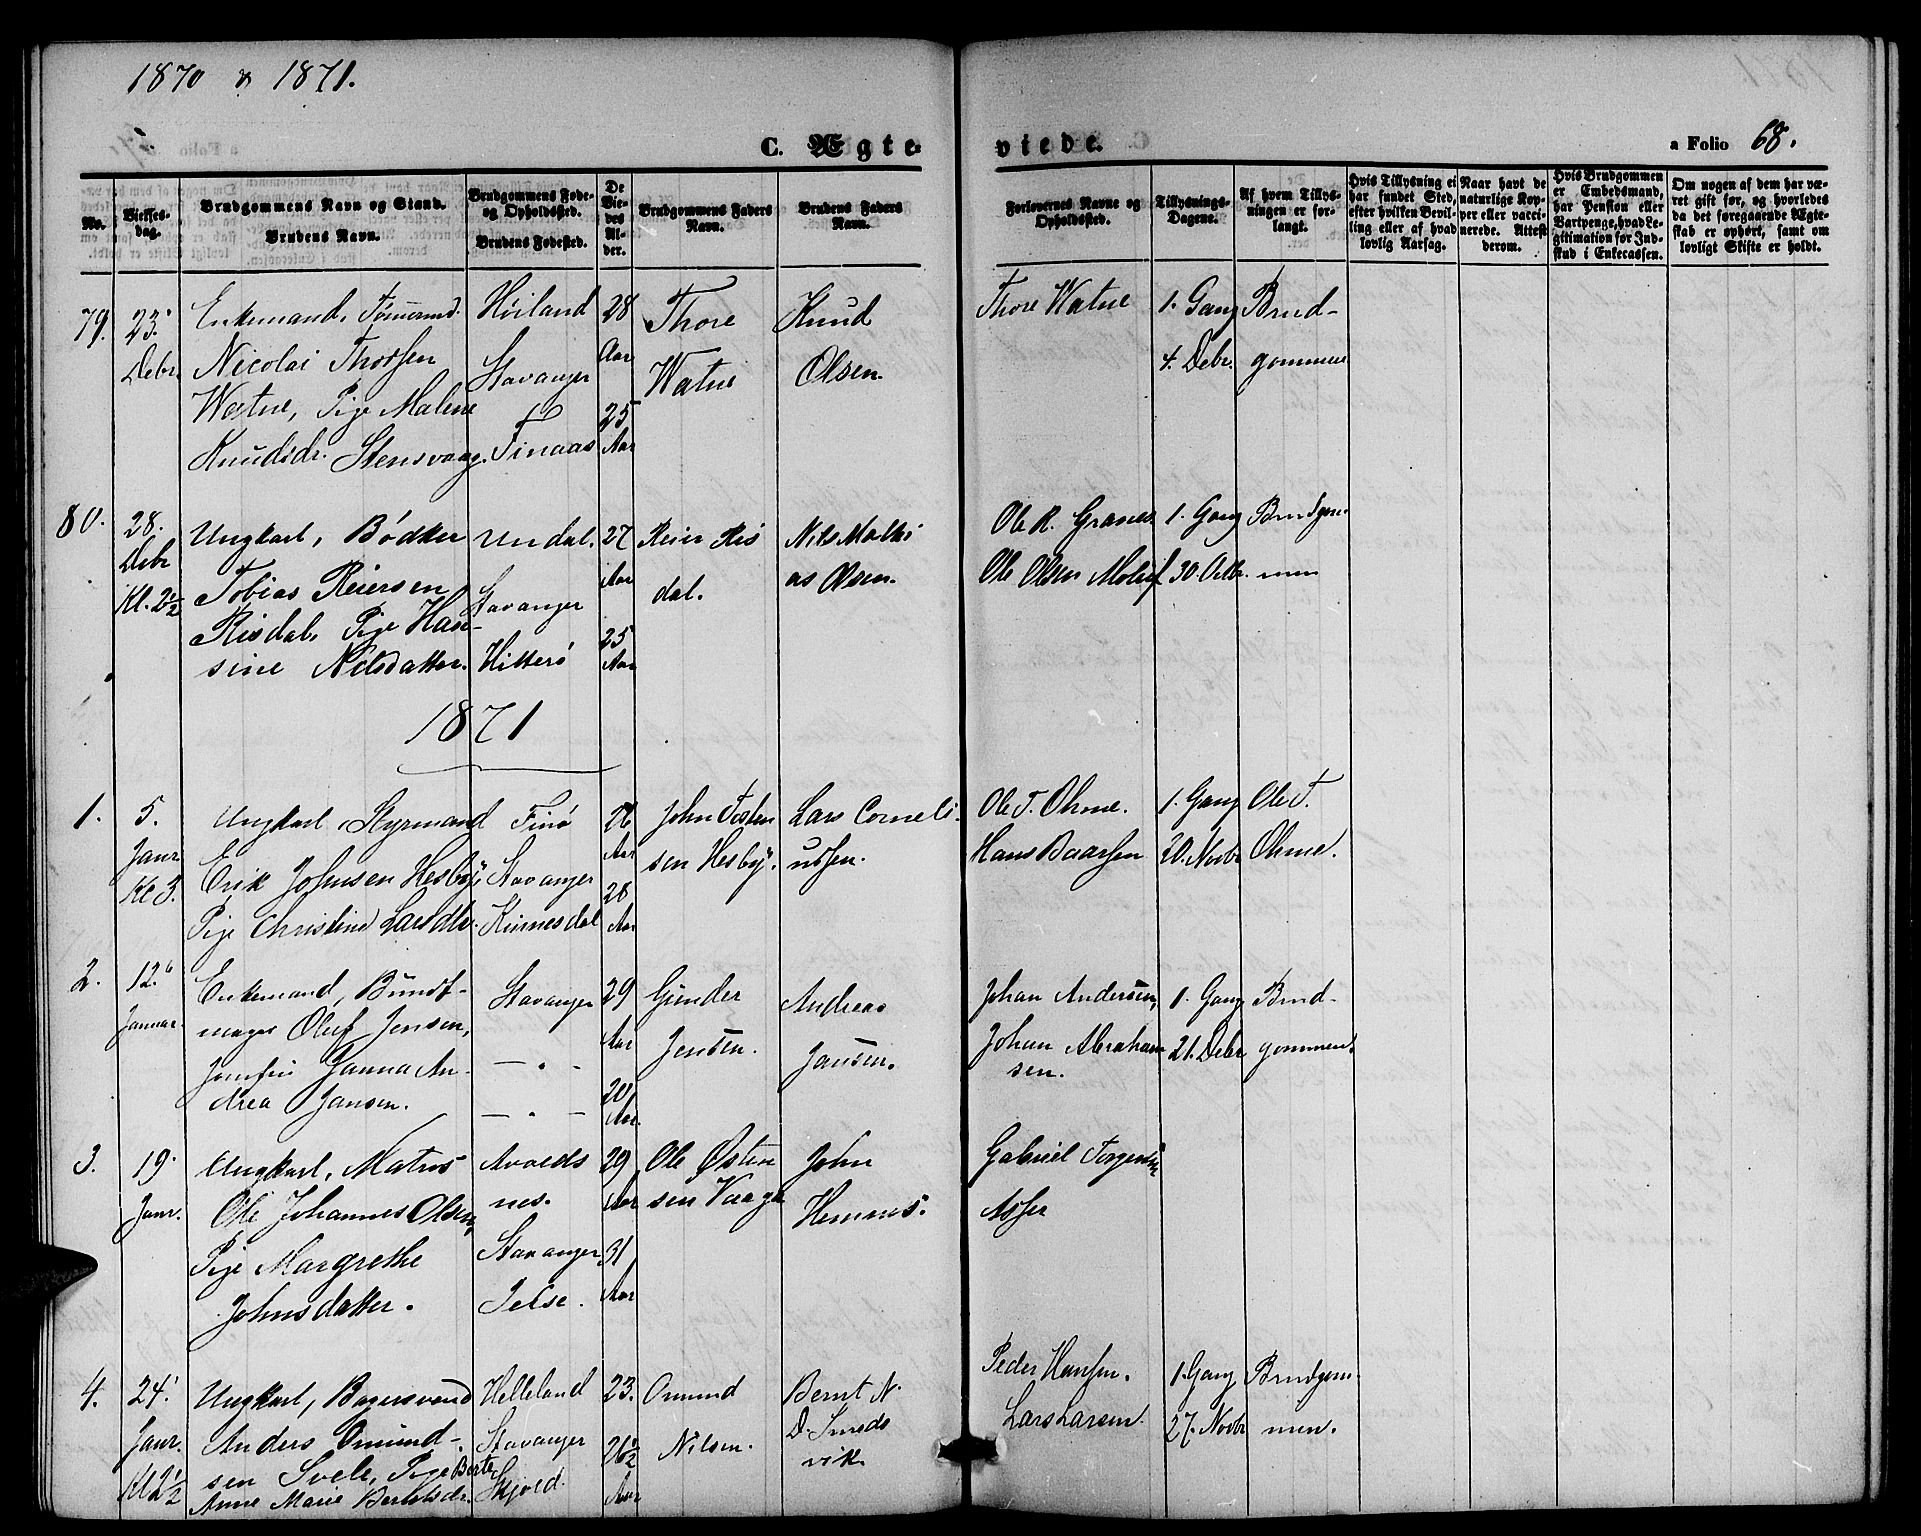 1870 & 1871.
C. Ægteviede.
a Folio 68.
No.
Vielses-dag.
Brudgommens Navn og Stand.
Brudens Navn.
Brudgommens Føde- og Opholdssted.
Brudens Fødested.
De Viedes Alder.
Brudgommens Faders Navn.
Brudens Faders Navn.
Forlovernes Navne og Opholdssted.
Tillysnings-Dagene.
Af hvem Tillysningen er forlangt.
Hvis Tillysning ei har fundet Sted, efter hvilken Bevilling eller af hvad lovlig Aarsag.
Naar havt de naturlige Kopper eller vaccinerede. Attest derom.
Hvis Brudgommen er Embedsmand, har Pension eller Vartpenge, hvad Legitimation for Indskud i Enkecassen.
Om nogen af dem har været gift før, og hvorledes da det foregaaende Ægteskab er ophørt, samt om lovligt Skifte er holdt.
79. 23. Debr.
Enkemand, Tømmermd.
Nicolai Thorsen
Watne, Pige Malene
Knudsdr. Stensvaag.
Høiland
Stavanger
Finaas
28 Aar
25 Aar
Thore Watne
Knud Olsen.
Thore Watne
1. Gang 4. Debr.
Brudgommen
80. 28. Debr Kl. 2½
Ungkarl, Bødker
Tobias Reiersen
Risdal, Pige Han-
sine Nilsdatter.
Undal.
Stavanger
Hitterø
27 Aar
25 Aar
Reier Risdal.
Nils Mathias Olsen.
Ole R. Graner
Ole Olsen
1. Gang 30 Octbr.
Brudgommen
1871
1. 5. Janr Kl 3.
Ungkarl, Styrmand
Erik Johnsen Hesbye
Pige Christine Larsdtr.
Finø
Stavanger
Kinnesdal
26 Aar
28 Aar
John Tostensen Hesby.
Lars Corneliussen.
Ole T. Ohme.
Hans Baarsen
1. Gang 20. Novbr
Ole T. Ohme.
2. 12. Januar.
Enkemand, Bundt-
mager Oluf Jensen,
Jomfru Janna An-
drea Jansen.
Stavanger
— „ —
— „ —
29 Aar
20 Aar.
Gunder Jensen.
Andreas Jansen.
Johan Andersen,
Johan Abrahamsen.
1. Gang 21. Debr
Brudgommen.
3. 19. Janr.
Ungkarl, Matros
Ole Johannes Olsen,
Pige Margrethe
Johnsdatter.
Avaldsnes.
Stavanger
Jelse.
29 Aar
31 Aar
Ole Østensen Vaage
John Hemnes.
Gabriel Torgersen
Asser
4. 24. Janr. Kl 2½
Ungkarl, Bagersvend
Anders Omund-
sen Svele, Pige Berte
Anne Marie Berntsdr.
Helleland
Stavanger
Skjold.
23.
26½ Aar
Omund Nilsen.
Bernt N. D. Smedsvik
Peder Hansen.
Lars Larsen.
1. Gang 27. Novbr
Brudgommen.